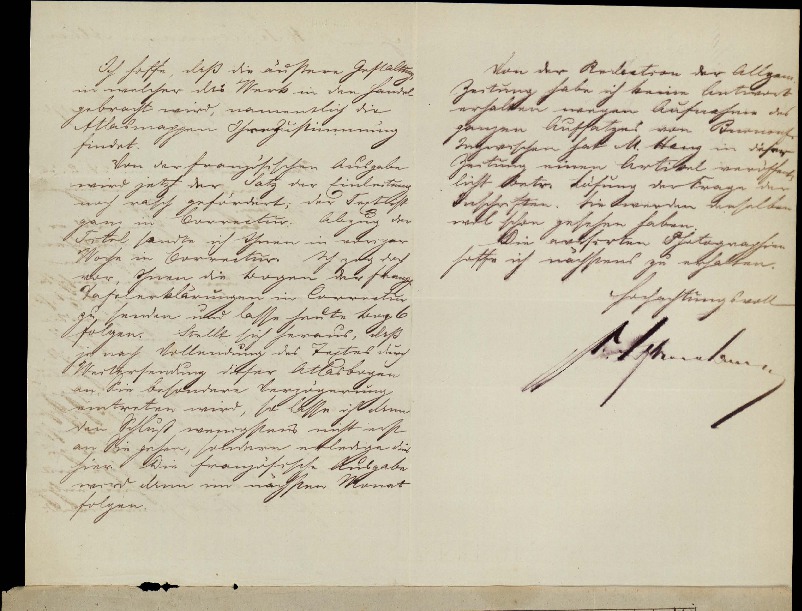 Ich hoffe, daß die äußere Gestaltung
in welcher das Werk in den Handel
gebracht wird, namentlich die
Atlasmappen Ihre Zustimmung
findet.
Von der französischen Ausgabe
wird jetzt der Satz der Einleitung
noch rasch gefördert; der Text ist
ganz in Correctur. Abzug der
Titel sandte ich Ihnen in voriger
Woche in Correctur. Ich zog doch
vor, Ihnen die Bogen der franz.
Tafelerklärungen in Correctur
zu senden und lasse heute Bog. 6
folgen. Stellt sich heraus, daß
je nach Vollendung des Textes durch
Versendung dieser Atlasbogen
an Sie besondere Verzögerung
eintreten wird, so lasse ich dann
den Schluß wenigstens nicht erst
an Sie gehen, sondern erledige dies
hier. Die französische Ausgabe
wird dann im nächsten Monat
folgen.
Von der Redaction der Allgem.
Zeitung habe ich keine Antwort
erhalten wegen Aufnahme des
ganzen Aufsatzes von Burnouf.
Inzwischen hat M. Haug in dieser
Zeitung einen Artikel veröffent-
licht betr. Lösung der Frage der
Inschriften. Sie werden denselben
wol schon gesehen haben.
Die avisirten Photographien
hoffe ich nächstens zu erhalten.
Hochachtungsvoll